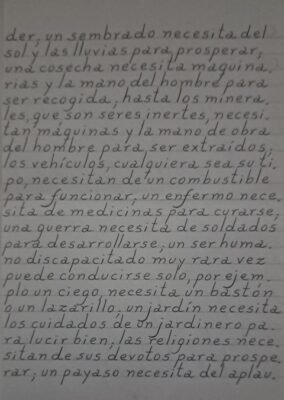 der; un sembrado necesita del
sol y las lluvias para prosperar;
una cosecha necesita maquina-
rias y la mano del hombre para
ser recogida; hasta los minera-
les, que son seres inertes, necesi-
tan máquinas y la mano de obra
del hombre para ser extraidos;
los vehículos, cualquiera sea su ti-
po, necesitan de un combustible
para funcionar; un enfermo nece-
sita de medicinas para curarse;
una guerra necesita de soldados
para desarrollarse; un ser huma-
no discapacitado muy rara vez
puede conducirse solo, por ejem-
plo un ciego, necesita un bastón
o un lazarillo; un jardín necesita
los cuidados de un jardinero pa-
ra lucir bien; las religiones nece-
sitan de sus devotos para prospe-
rar; un payaso necesita del aplau-